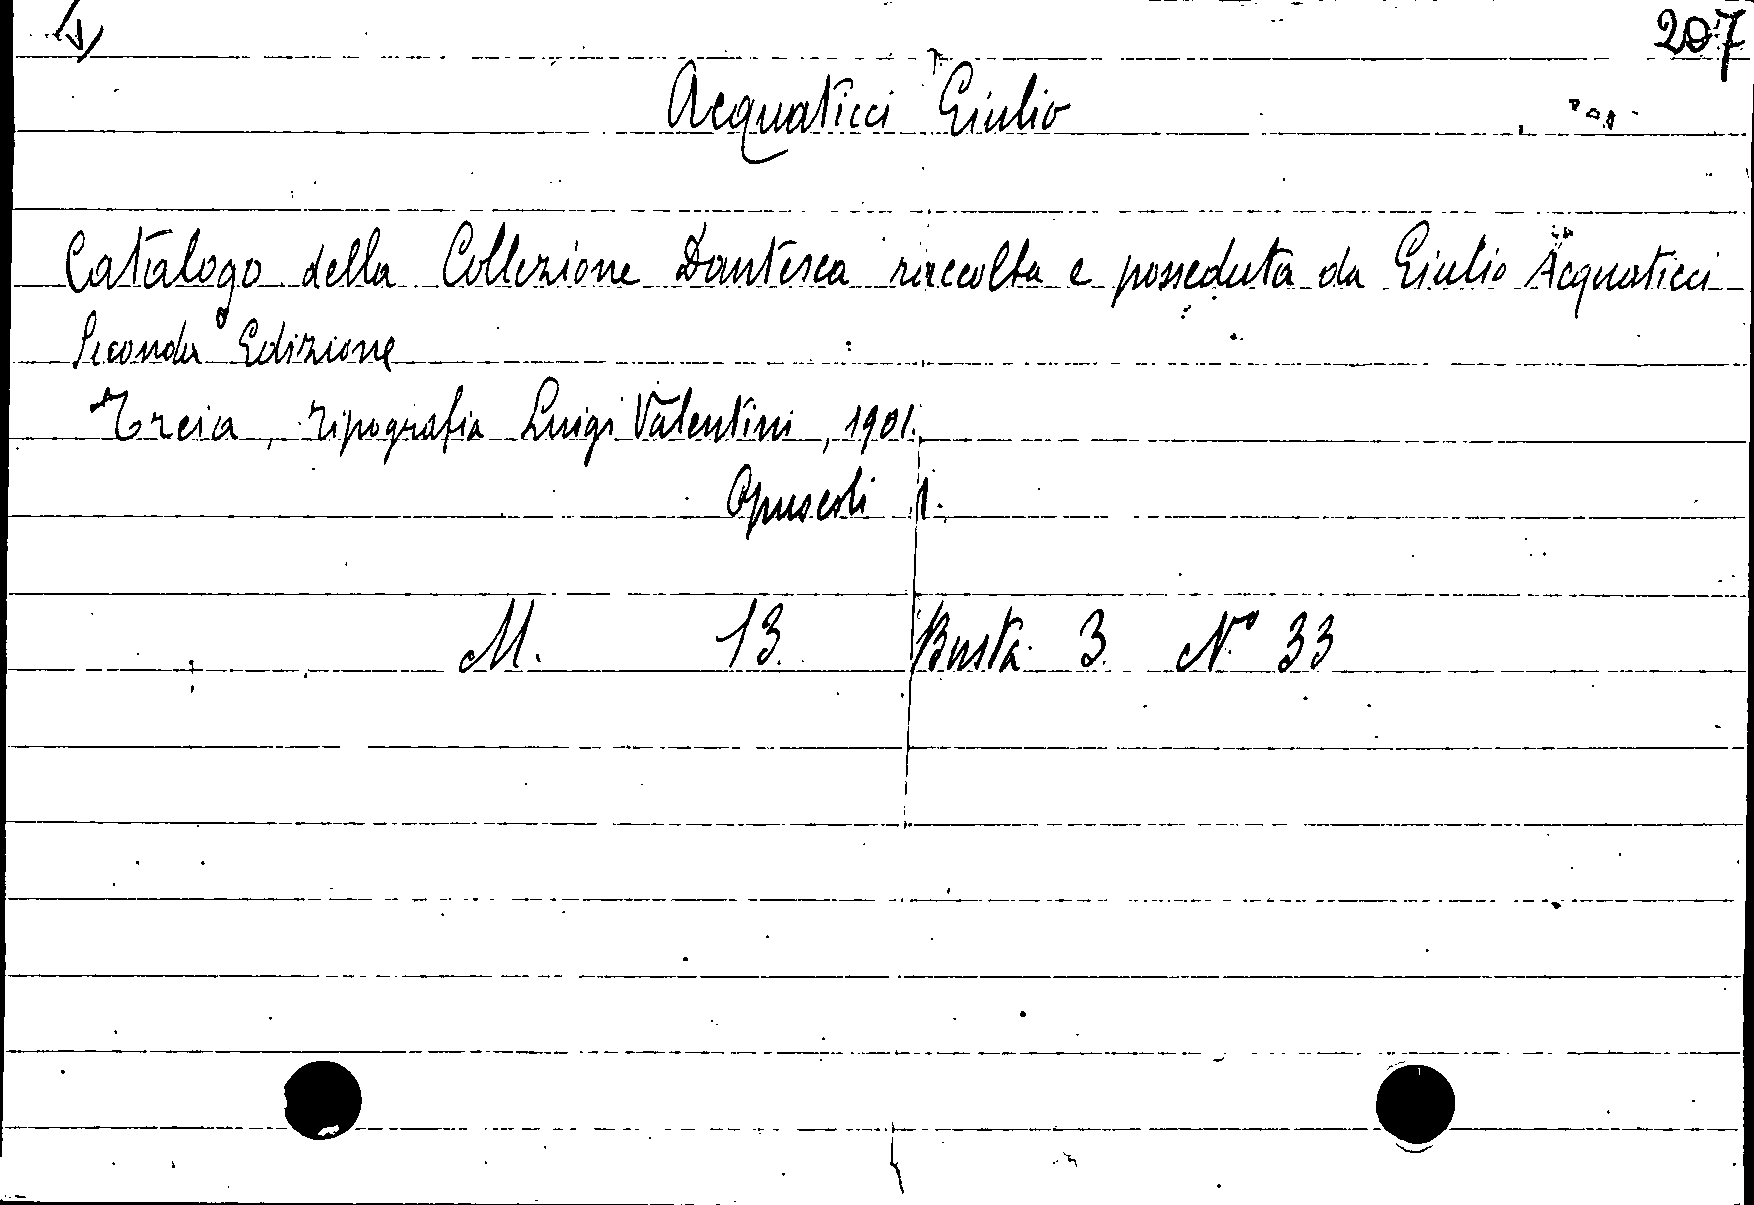 207
Acquaticci Giulio
Catalogo della Collezione Dantesca raccolta e posseduta da Giulio Acquaticci
Seconda Edizione
Treia, Tipografia Luigi Valentini, 1901.
Opuscoli 1.
M. 13. Busta 3. N° 33